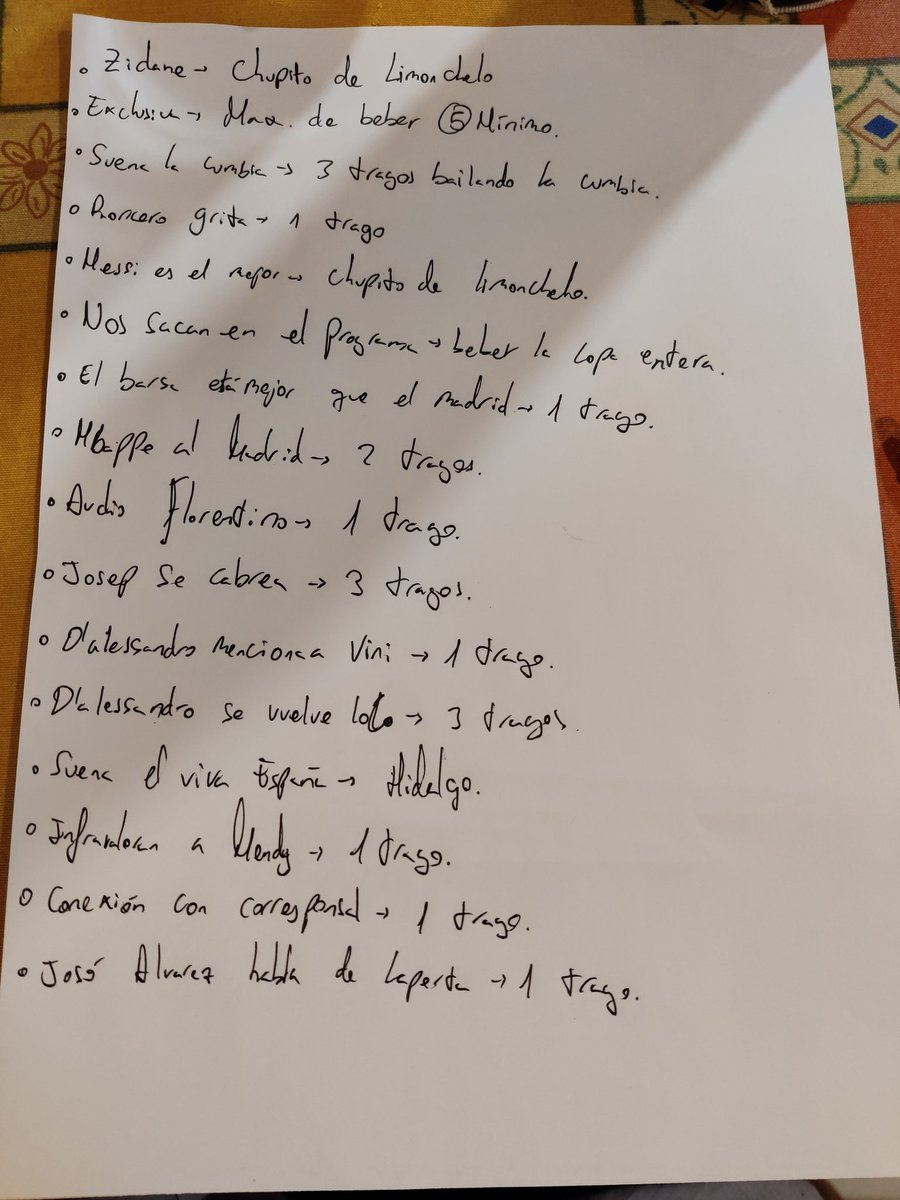 • Zidane → Chupito de Limonchelo
• Exclusiva → Max. de beber ⑤ Mínimo.
• Suena la cumbia → 3 tragos bailando la cumbia.
• Roncero grita → 1 trago
• Messi es el mejor → Chupito de limonchelo.
• Nos sacan en el programa → beber la copa entera.
• El barsa está mejor que el madrid → 1 trago.
• Mbappe al Madrid → 2 tragos.
• Audio Florentino → 1 trago.
• Josep se cabrea → 3 tragos.
• D'alessandro menciona a Vini → 1 trago.
• D'alessandro se vuelve loco → 3 tragos.
• Suena el viva España → Hidalgo.
• Infravaloran a Mendy → 1 trago.
• Conexión con corresponsal → 1 trago.
• José Alvarez habla de Laporta → 1 trago.